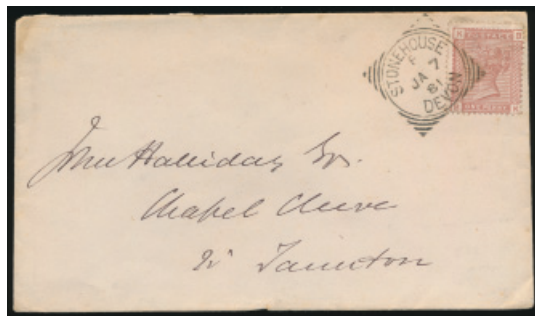 STONEHOUSE
JA 7
81
DEVON
POSTAGE
ONE PENNY
John Halliday Esqr.
Chapel Cleeve
Nr Taunton